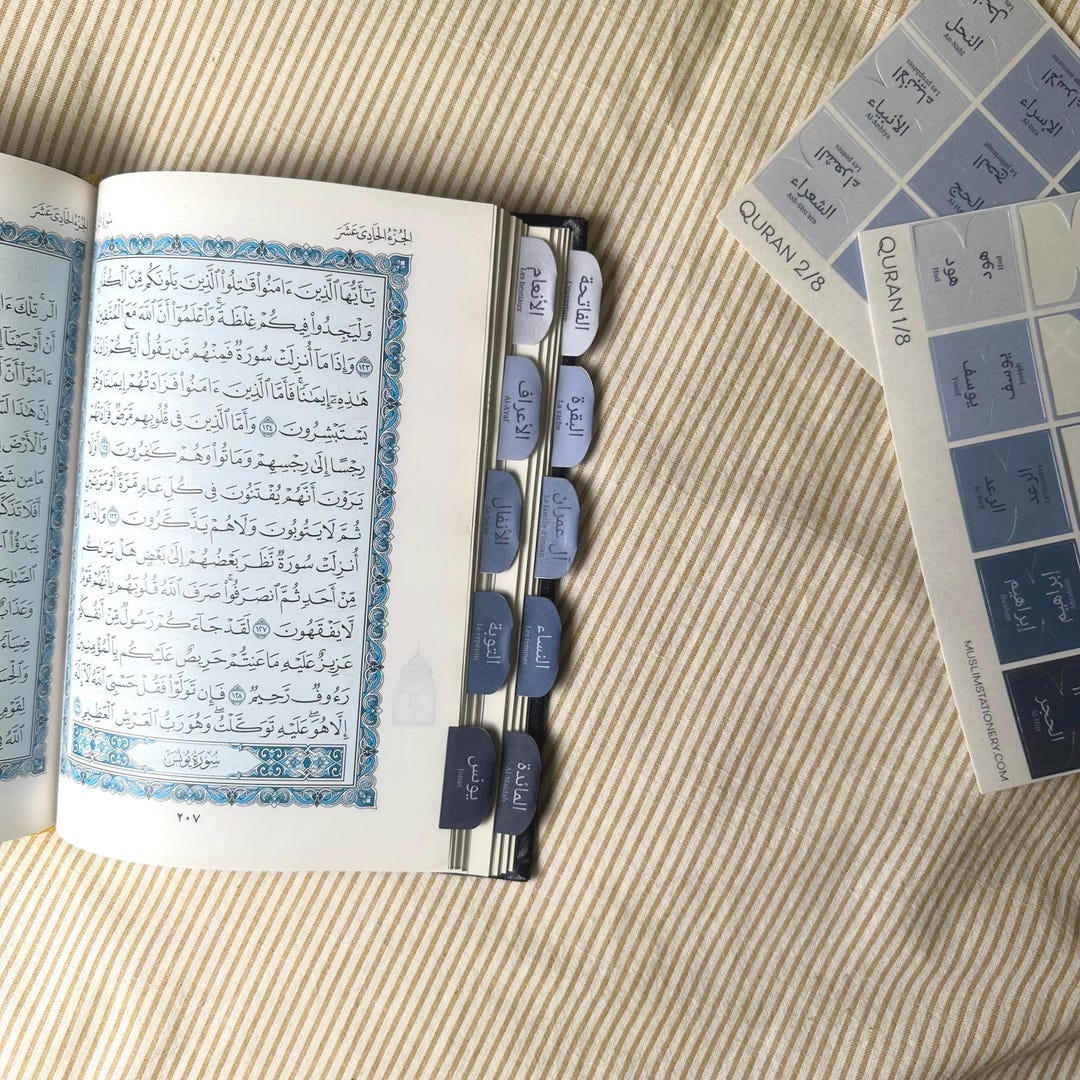 الجُزْءُ الحَادِى عَشَرَ
يَـٰٓأَيُّهَا ٱلَّذِينَ ءَامَنُوا۟ قَـٰتِلُوا۟ ٱلَّذِينَ يَلُونَكُم مِّنَ
وَلْيَجِدُوا۟ فِيكُمْ غِلْظَةً ۚ وَٱعْلَمُوٓا۟ أَنَّ ٱللَّهَ مَعَ ٱلْمُتَّقِينَ
١٢٣ وَإِذَا مَآ أُنزِلَتْ سُورَةٌ فَمِنْهُم مَّن يَقُولُ أَيُّكُمْ زَادَتْهُ
هَـٰذِهِۦٓ إِيمَـٰنًا ۚ فَأَمَّا ٱلَّذِينَ ءَامَنُوا۟ فَزَادَتْهُمْ إِيمَـٰنًا وَهُمْ
يَسْتَبْشِرُونَ ١٢٤ وَأَمَّا ٱلَّذِينَ فِى قُلُوبِهِم مَّرَضٌ فَزَادَتْهُمْ
رِجْسًا إِلَىٰ رِجْسِهِمْ وَمَاتُوا۟ وَهُمْ كَـٰفِرُونَ ١٢٥ أَوَلَا
يَرَوْنَ أَنَّهُمْ يُفْتَنُونَ فِى كُلِّ عَامٍ مَّرَّةً أَوْ مَرَّتَيْنِ
ثُمَّ لَا يَتُوبُونَ وَلَا هُمْ يَذَّكَّرُونَ ١٢٦ وَإِذَا مَآ
أُنزِلَتْ سُورَةٌ نَّظَرَ بَعْضُهُمْ إِلَىٰ بَعْضٍ هَلْ يَرَىٰكُم
مِّنْ أَحَدٍ ثُمَّ ٱنصَرَفُوا۟ ۚ صَرَفَ ٱللَّهُ قُلُوبَهُم بِأَنَّهُمْ قَوْمٌ
لَّا يَفْقَهُونَ ١٢٧ لَقَدْ جَآءَكُمْ رَسُولٌ مِّنْ أَنفُسِكُمْ
عَزِيزٌ عَلَيْهِ مَا عَنِتُّمْ حَرِيصٌ عَلَيْكُم بِٱلْمُؤْمِنِينَ
رَءُوفٌ رَّحِيمٌ ١٢٨ فَإِن تَوَلَّوْا۟ فَقُلْ حَسْبِىَ ٱللَّهُ لَآ إِلَـٰهَ
إِلَّا هُوَ ۖ عَلَيْهِ تَوَكَّلْتُ ۖ وَهُوَ رَبُّ ٱلْعَرْشِ ٱلْعَظِيمِ
سُورَةُ يُونُسَ
٢٠٧
الجُزْءُ الحَادِى عَشَرَ
الٓر ۚ تِلْكَ
أَنْ أَوْحَيْنَآ
إِنَّ هَـٰذَا
مَا مِن
أَفَلَا
يَبْدَؤُا۟
وَعَذَابٌ
لِقَوْمٍ
ٱللَّهُ
الفاتحة
L'ouverture
البقرة
La vache
آل عمران
La famille d'Imran
النساء
Les femmes
المائدة
Al-Maidah
الأنعام
Les bestiaux
الأعراف
Al-A'raf
الأنفال
Le butin
التوبة
Le repentir
يونس
Jonas
QURAN 2/8
النحل
An-Nahl
الأنبياء
Al-Anbiya
الأنبياء
Les prophètes
الشعراء
Ash-Shu'ara
الشعراء
Les poètes
الإسراء
Al-Isra
الإسراء
الحج
الحج
Le pèlerinage
QURAN 1/8
هود
Hud
هود
Hud
يوسف
Yusuf
يوسف
Joseph
الرعد
Ar-Ra'd
الرعد
Le tonnerre
إبراهيم
Ibrahim
إبراهيم
Abraham
الحجر
Al-Hijr
MUSLIMSTATIONERY.COM